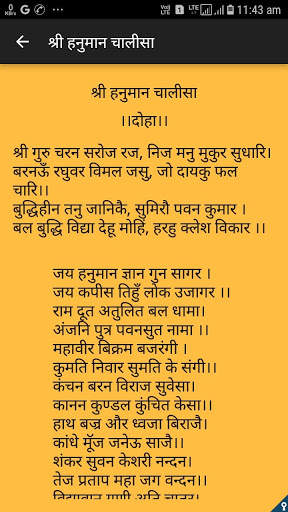 0 K/s
VoLTE LTE LTE 11:43 am
श्री हनुमान चालीसा
श्री हनुमान चालीसा
।।दोहा।।
श्री गुरु चरन सरोज रज, निज मनु मुकुर सुधारि।
बरनऊँ रघुवर विमल जसु, जो दायकु फल
चारि।।
बुद्धिहीन तनु जानिकै, सुमिरौ पवन कुमार ।
बल बुद्धि विद्या देहू मोहिं, हरहु क्लेश विकार ।।
जय हनुमान ज्ञान गुन सागर ।
जय कपीस तिहुँ लोक उजागर ।।
राम दूत अतुलित बल धामा।
अंजनि पुत्र पवनसुत नामा ।।
महावीर बिक्रम बजरंगी।
कुमति निवार सुमति के संगी।।
कंचन बरन विराज सुवेसा।
कानन कुण्डल कुंचित केसा।।
हाथ बज्र और ध्वजा बिराजै।
कांधे मूॅज जनेऊ साजै।।
शंकर सुवन केशरी नन्दन।
तेज प्रताप महा जग वन्दन।।
विद्यावान गुणी अति चातुर।